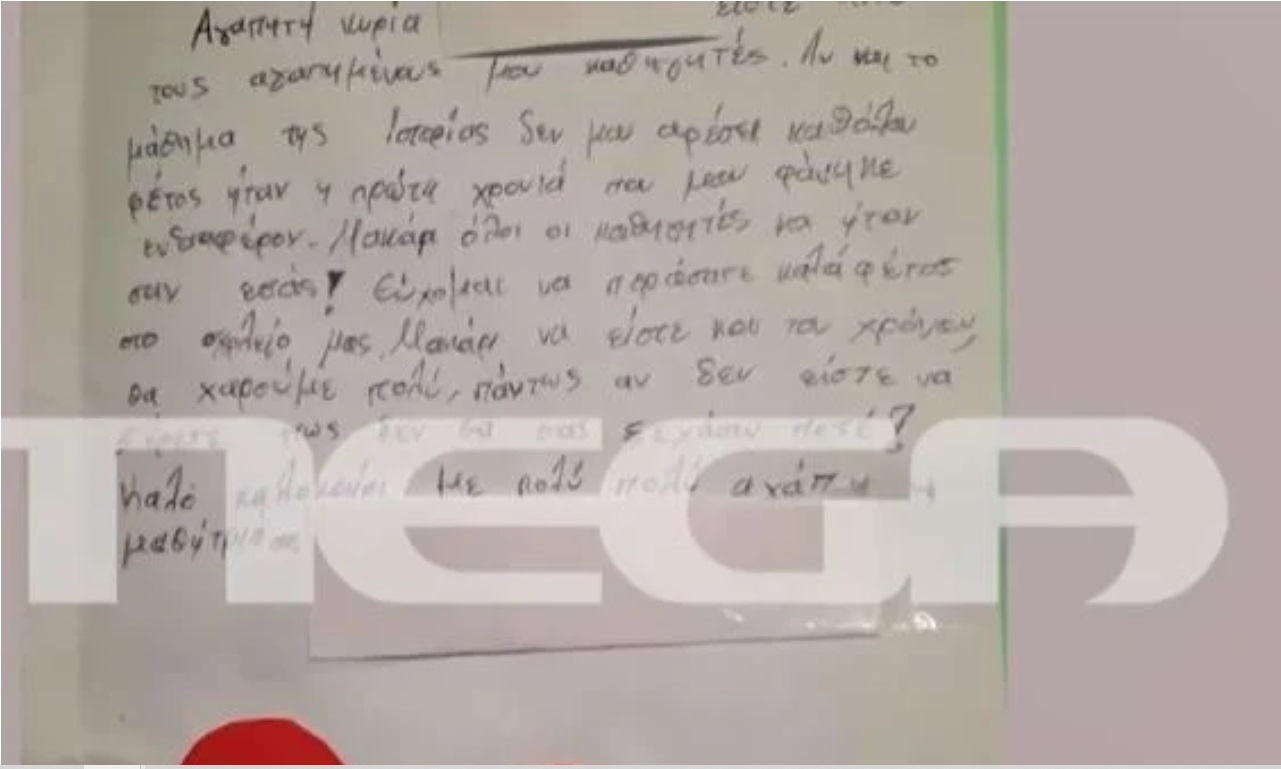 Αγαπητή κυρία είστε από
τους αγαπημένους μου καθηγητές. Αν και το
μάθημα της Ιστορίας δεν μου αρέσει καθόλου
φέτος ήταν η πρώτη χρονιά που μου φάνηκε
ενδιαφέρον. Μακάρι όλοι οι καθηγητές να ήταν
σαν εσάς! Εύχομαι να περάσατε καλά φέτος
στο σχολείο μας. Μακάρι να είστε και του χρόνου,
θα χαρούμε πολύ, πάντως αν δεν είστε να
ξέρετε πως δεν θα σας ξεχάσω ποτέ!
Καλό καλοκαίρι. Με πολύ πολύ αγάπη η
μαθήτρια σας
MEGA